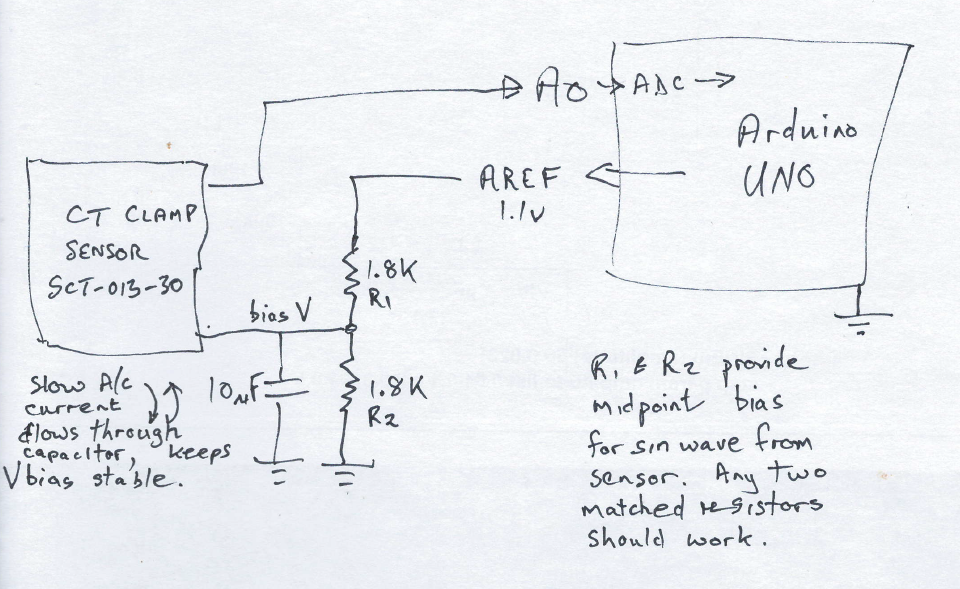 A0 → ADC →
Arduino
UNO
AREF
1.1v
CT CLAMP
SENSOR
SCT-013-30
1.8K
R1
bias V
10µF
1.8K
R2
Slow A/c
current
flows through
capacitor, keeps
Vbias stable.
R1 & R2 provide
midpoint bias
for sin wave from
sensor. Any two
matched resistors
should work.